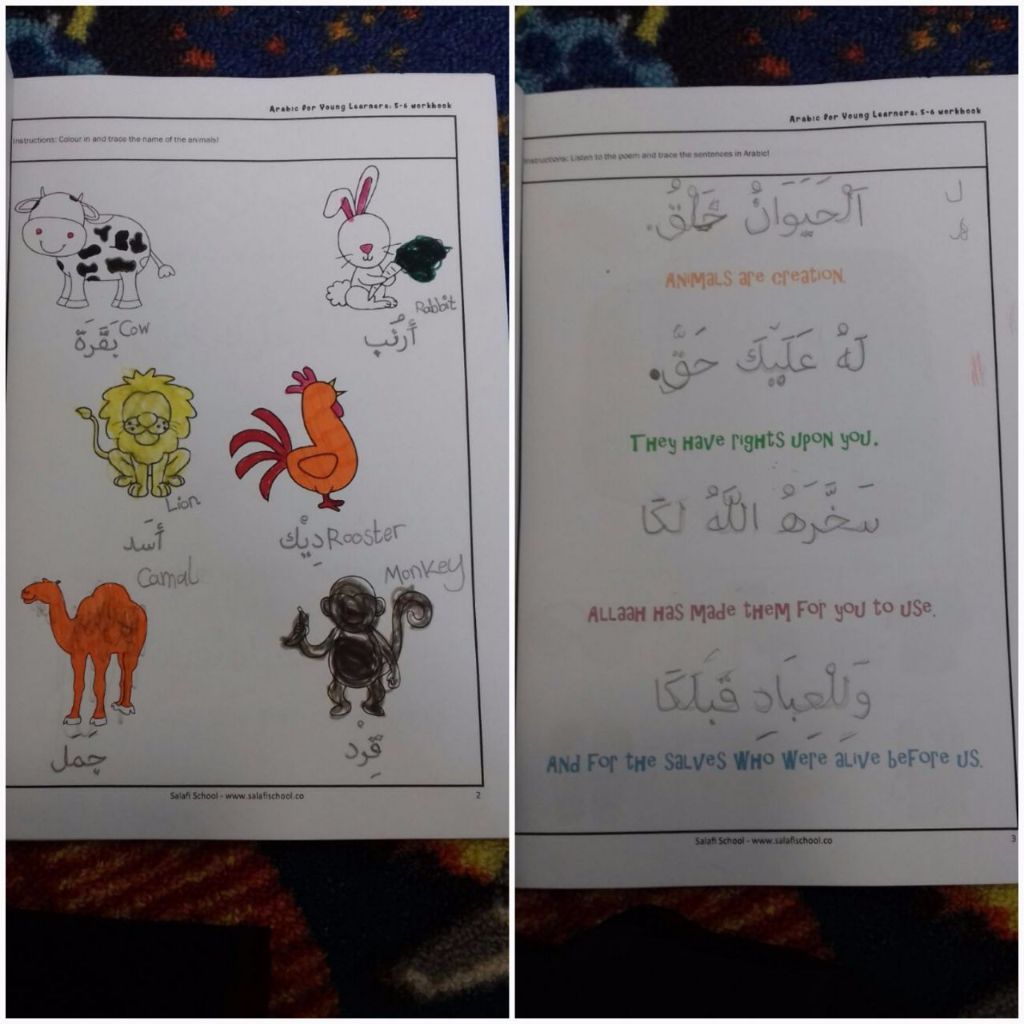 Arabic for Young Learners: 5-6 workbook
Instructions: Colour in and trace the name of the animals!
Cow
بَقَرَة
Rabbit
أَرْنَب
Lion
أَسَد
Rooster
دِيْك
Camal
جَمَل
Monkey
قِرْد
Salafi School - www.salafischool.co
2
Arabic for Young Learners: 5-6 workbook
Instructions: Listen to the poem and trace the sentences in Arabic!
اَلْحَيَوَانُ خَلْقُ.
ل
ه
ANIMALS are creation.
لَهُ عَلَيْكَ حَقُّ.
They Have rights upon you.
سَخَّرَهُ اللَّهُ لَكَا
ALLaaH Has made them for you to use.
وَلِلْعِبَادِ قَبْلَكَا
And for the salves who were alive before us.
Salafi School - www.salafischool.co
3